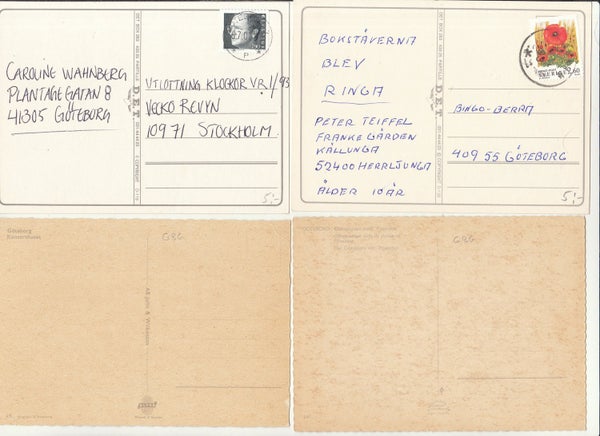 CAROLINE WAHNBERG
PLANTAGEGATAN 8
41305 GÖTEBORG
UTLOTTNING KLOCKOR VR.1/93
VECKO REVYN
10971 STOCKHOLM.
D.E.T
5:-
BOKSTÄVERNA
BLEV
RINGA
PETER TEIFFEL
FRANKE GÅRDEN
KÄLLUNGA
52400 HERRLJUNGA
ÅLDER 10 ÅR
D.E.T
BINGO-BERRA
409 55 GÖTEBORG
5:-
Göteborg
Konserthuset
GBG
GBG